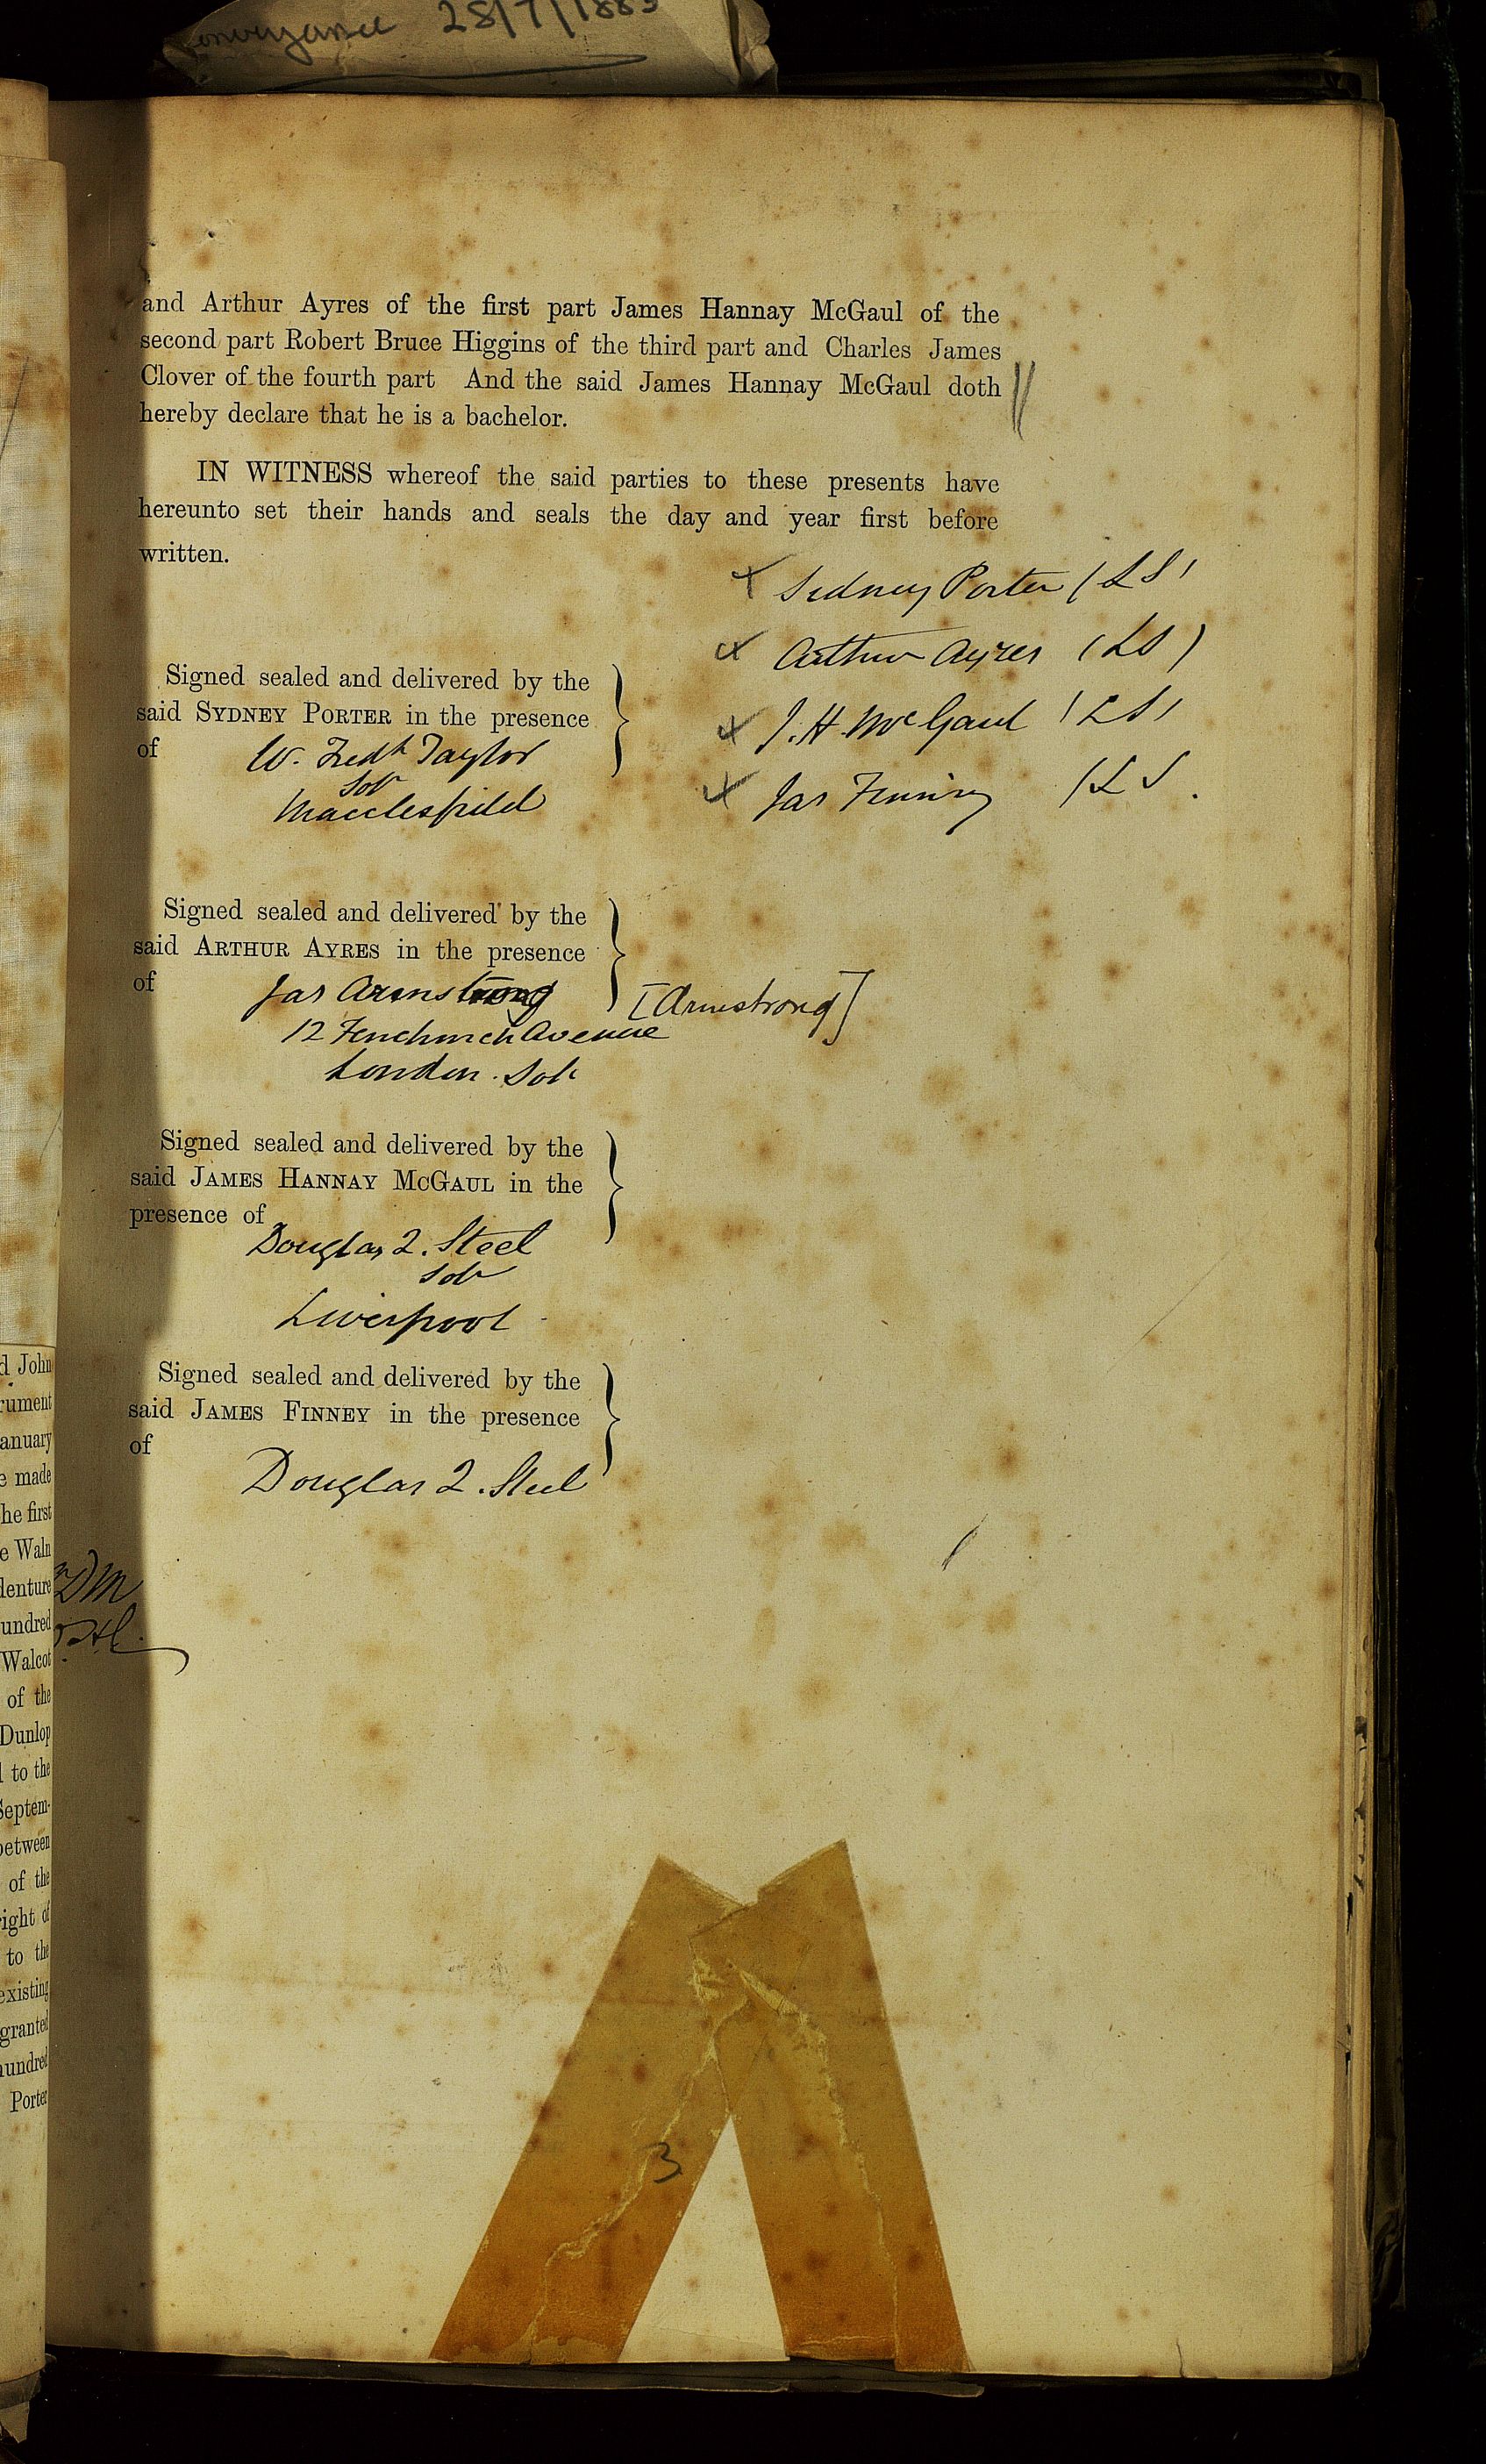 Conveyance 28/7/1885
and Arthur Ayres of the first part James Hannay McGaul of the
second part Robert Bruce Higgins of the third part and Charles James
Clover of the fourth part And the said James Hannay McGaul doth
hereby declare that he is a bachelor.
IN WITNESS whereof the said parties to these presents have
hereunto set their hands and seals the day and year first before
written.
Sidney Porter (LS)
Arthur Ayres (LS)
J. H. McGaul (LS)
Jas Finney (LS
Signed sealed and delivered by the
said SYDNEY PORTER in the presence
of
W. Fredk Taylor
Solr
Macclesfield
Signed sealed and delivered by the
said ARTHUR AYRES in the presence
of
Jas Armstrong
[Armstrong]
12 Fenchurch Avenue
London. Solr
Signed sealed and delivered by the
said JAMES HANNAY MCGAUL in the
presence of
Douglas Q. Steel
Solr
Liverpool
Signed sealed and delivered by the
said JAMES FINNEY in the presence
of
Douglas Q. Steel
d John
rument
anuary
e made
he first
e Waln
denture
undred
Walcot
of the
Dunlop
l to the
Septem-
between
of the
right of
to the
existing
granted
hundred
Porter
3